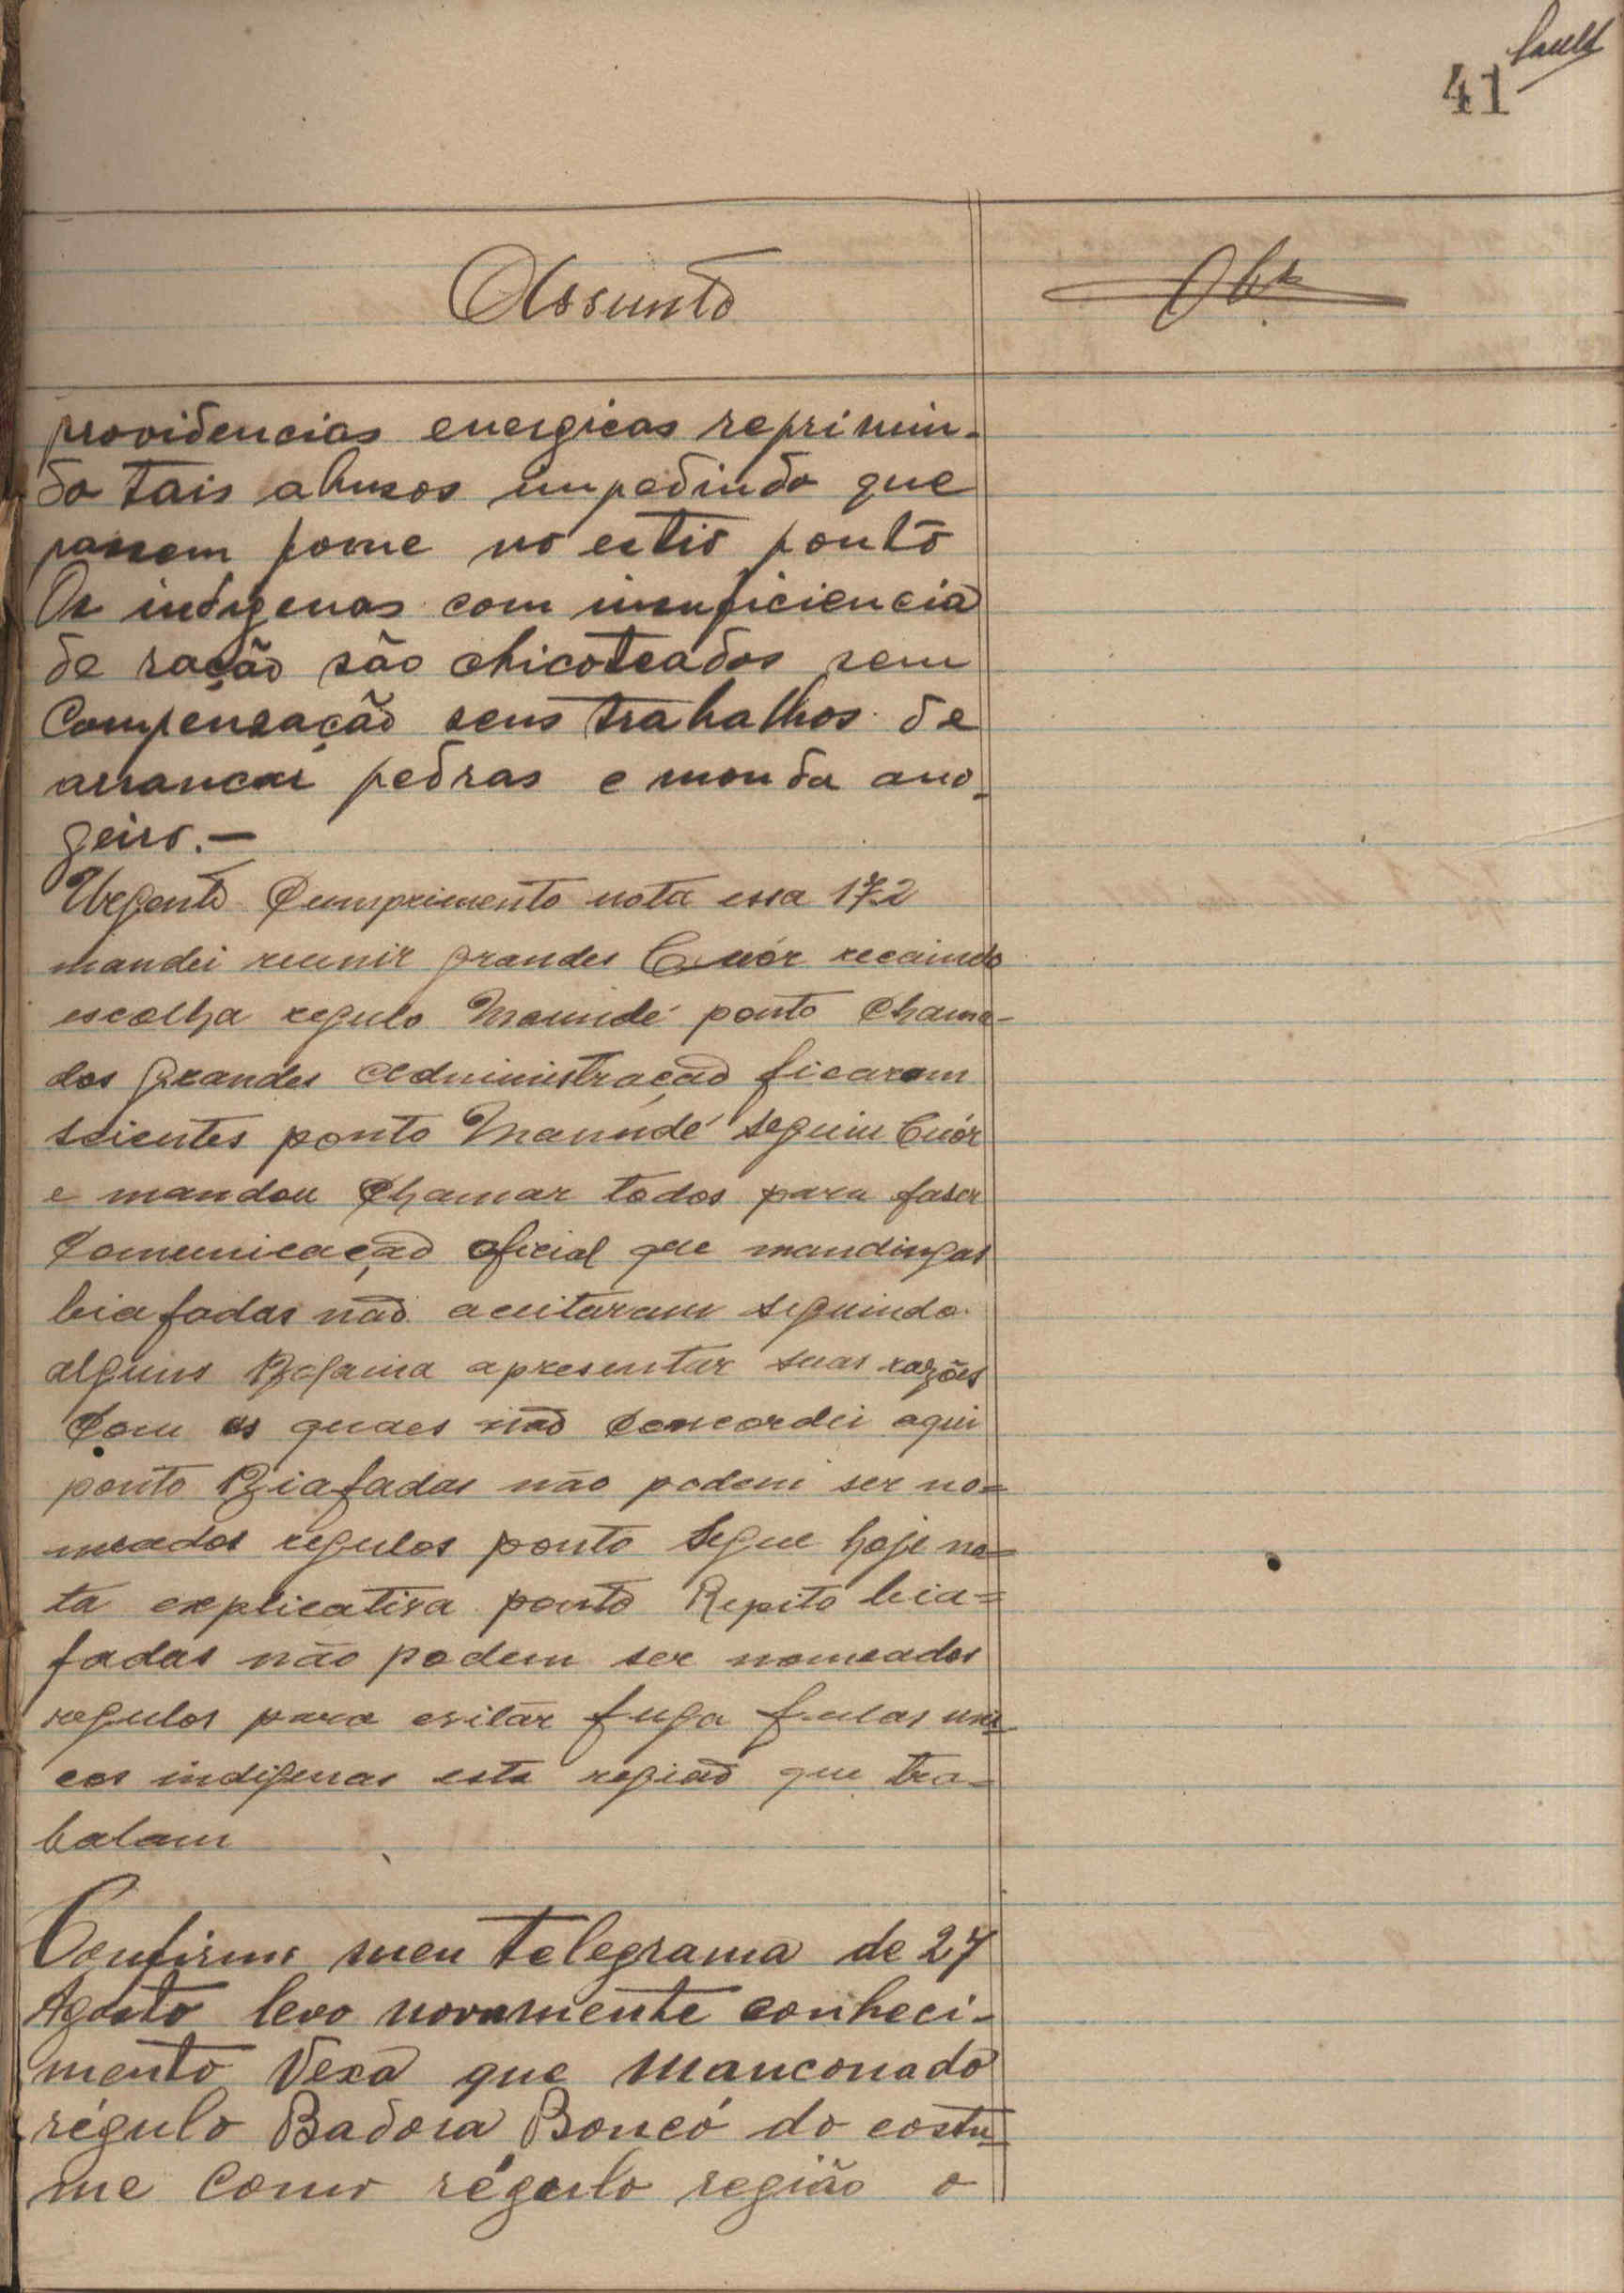 41
Assunto
Obs
providencias energicas reprimin-
do tais abusos impedindo que
passem fome no estio ponto
Os indigenas com insuficiencia
de ração são chicoteados sem
compensação seus trabalhos de
arrancar pedras e monda
geiro.—
Urgente Cumprimento nota essa 172
mandei reunir grandes Cuór recaindo
escolha regulo Maundé ponto Chama-
dos grandes Administração ficaram
scientes ponto Maundé seguiu Cuór
e mandou Chamar todos para faser
Comunicação oficial que mandingas
biafadas não aceitaram seguindo
alguns Bafama apresentar suas razões
Com as quaes não Concordei aqui
ponto Biafadas não podem ser no=
meados regulos ponto Segue hoje no=
ta explicativa ponto Repito bia=
fadas não podem ser nomeados
regulos para evitar fuga fulas uni
cos indigenas esta região que tra=
balam
Confirmo meu telegrama de 27
Agosto levo novamente conheci-
mento Vexa que Manconado
régulo Badora Boncó do costu=
me como régulo região o